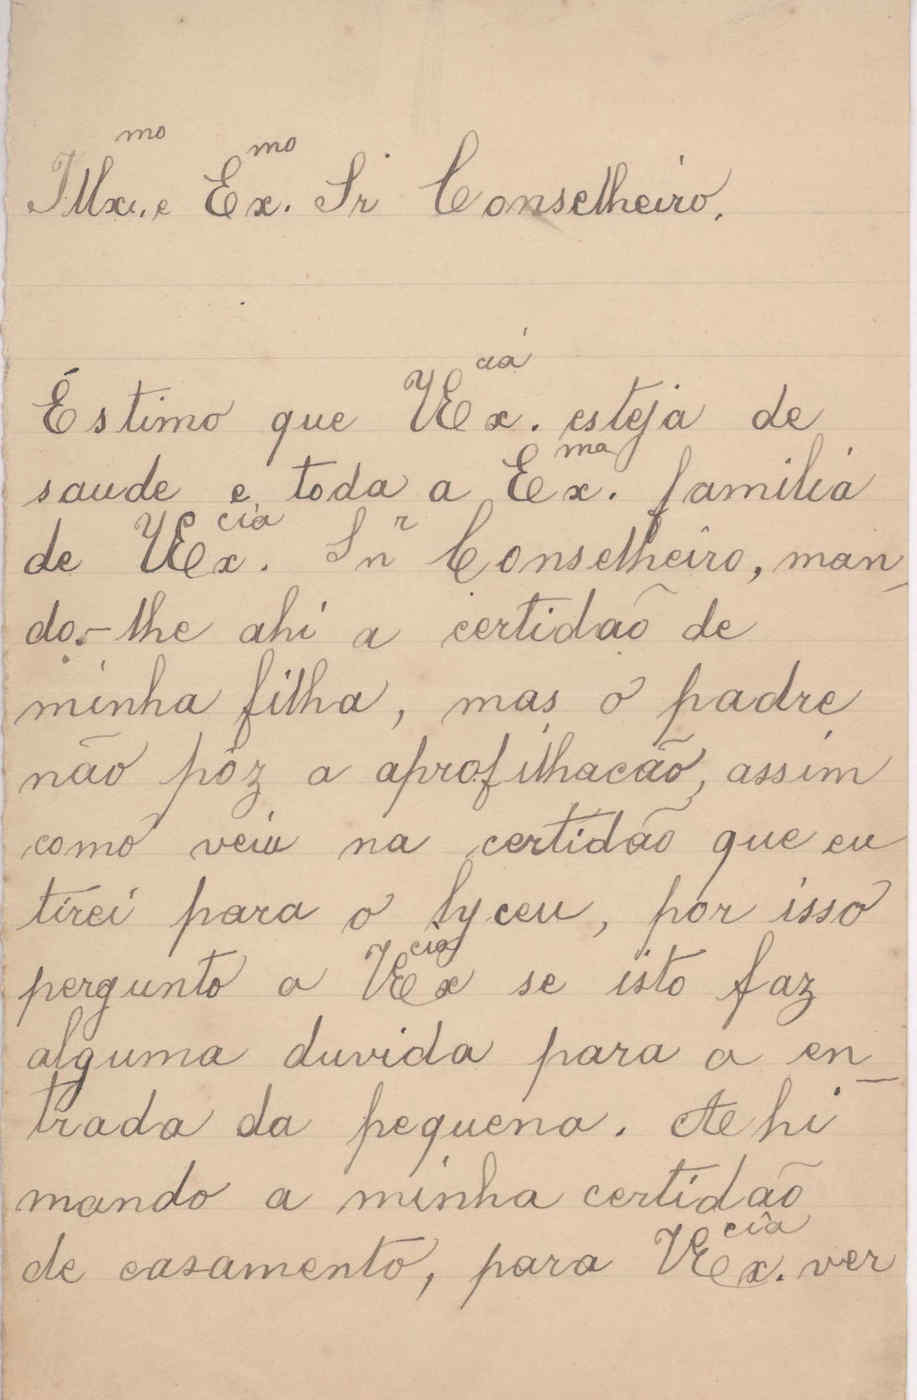 Illmo. e Exmo. Sr Conselheiro.
Éstimo que VExcia. esteja de
saude e toda a Exma. familia
de VExcia. Snr Conselheiro, man-
do-lhe ahi a certidão de
minha filha, mas o padre
não pôz a aprofilhacão, assim
como veiu na certidão que eu
tirei para o lyceu, por isso
pergunto a VExcia se isto faz
alguma duvida para a en-
trada da pequena. Ahi
mando a minha certidão
de casamento, para VExcia. ver